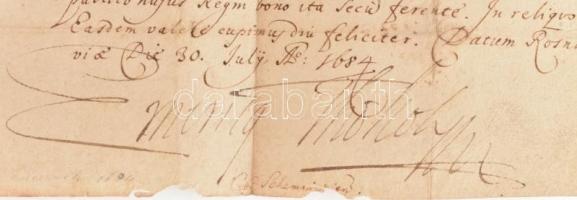 publico hujus Regni bono ita secū ferente. In reliquo
Easdem valere cupimus diu feliciter. Datum Rosna
viæ Die 30. July Aō: 1684
Emericus Thököly
darabanth